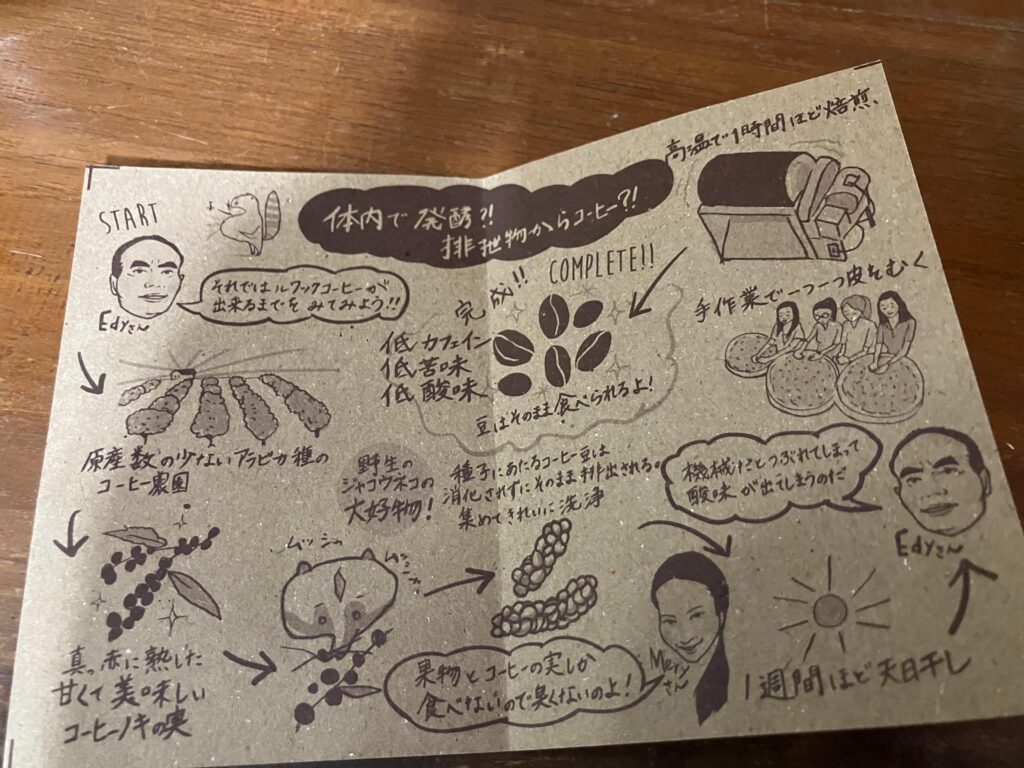 体内で発酵?!
排泄物からコーヒー?!
START
Edyさん
それではルワックコーヒーが
出来るまでをみてみよう!!
原産数の少ないアラビカ種の
コーヒー農園
真っ赤に熟した
甘くて美味しい
コーヒーノキの実
野生の
ジャコウネコの
大好物!
ムッシャ
ムッシャ
種子にあたるコーヒー豆は
消化されずにそのまま排出される。
集めてきれいに洗浄
果物とコーヒーの実しか
食べないので臭くないのよ!
Meryさん
1週間ほど天日干し
Edyさん
機械だとつぶれてしまって
酸味が出てしまうのだ
手作業で一つ一つ皮をむく
高温で1時間ほど焙煎、
完成!!
COMPLETE!!
低カフェイン
低苦味
低酸味
豆はそのまま食べられるよ!